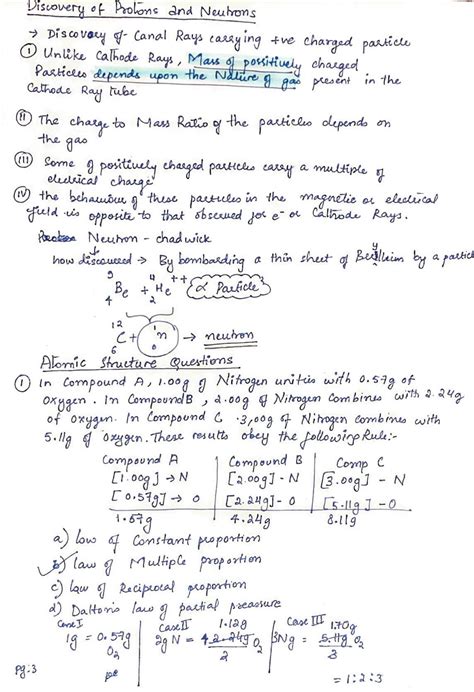 Discovery of Protons and Neutrons
→ Discovery of Canal Rays carrying +ve charged particle
(I) Unlike Cathode Rays, Mass of possitively charged
Particles depends upon the Nature of gas present in the
Cathode Ray tube
(II) The charge to Mass Ratio of the particles depends on
the gas
(III) Some of positively charged particles carry a multiple of
electrical charge
(IV) the behaviour of these particles in the magnetic or electrical
field is opposite to that observed for e⁻ or Cathode Rays.
Neutron - chadwick
how discovered → By bombarding a thin sheet of Beryllium by α particle
⁹₄Be + ⁴₂He⁺⁺ (α Particle)
¹²₆C + ¹₀n → neutron
Atomic Structure Questions
(1) In Compound A, 1.00g of Nitrogen unities with 0.57g of
oxygen. In Compound B, 2.00g of Nitrogen combines with 2.24g
of oxygen. In Compound C 3,00g of Nitrogen combines with
5.11g of oxygen. These results obey the following Rule:-
Compound A | Compound B | Comp C
[1.00g] → N | [2.00g] - N | [3.00g] - N
[0.57g] → O | [2.24g] - O | [5.11g] - O
1.57g 4.24g 8.11g
a) low of Constant proportion
b) law of Multiple proportion
c) law of Reciprocal proportion
d) Dalton's law of partial preassure
Case I | Case II 1.12g | Case III 1.70g
1g = 0.57g O₂ | 2g N = 2.24g/2 O₂ | 3Ng = 5.11g/3 O₂
= 1:2:3
Pg:3